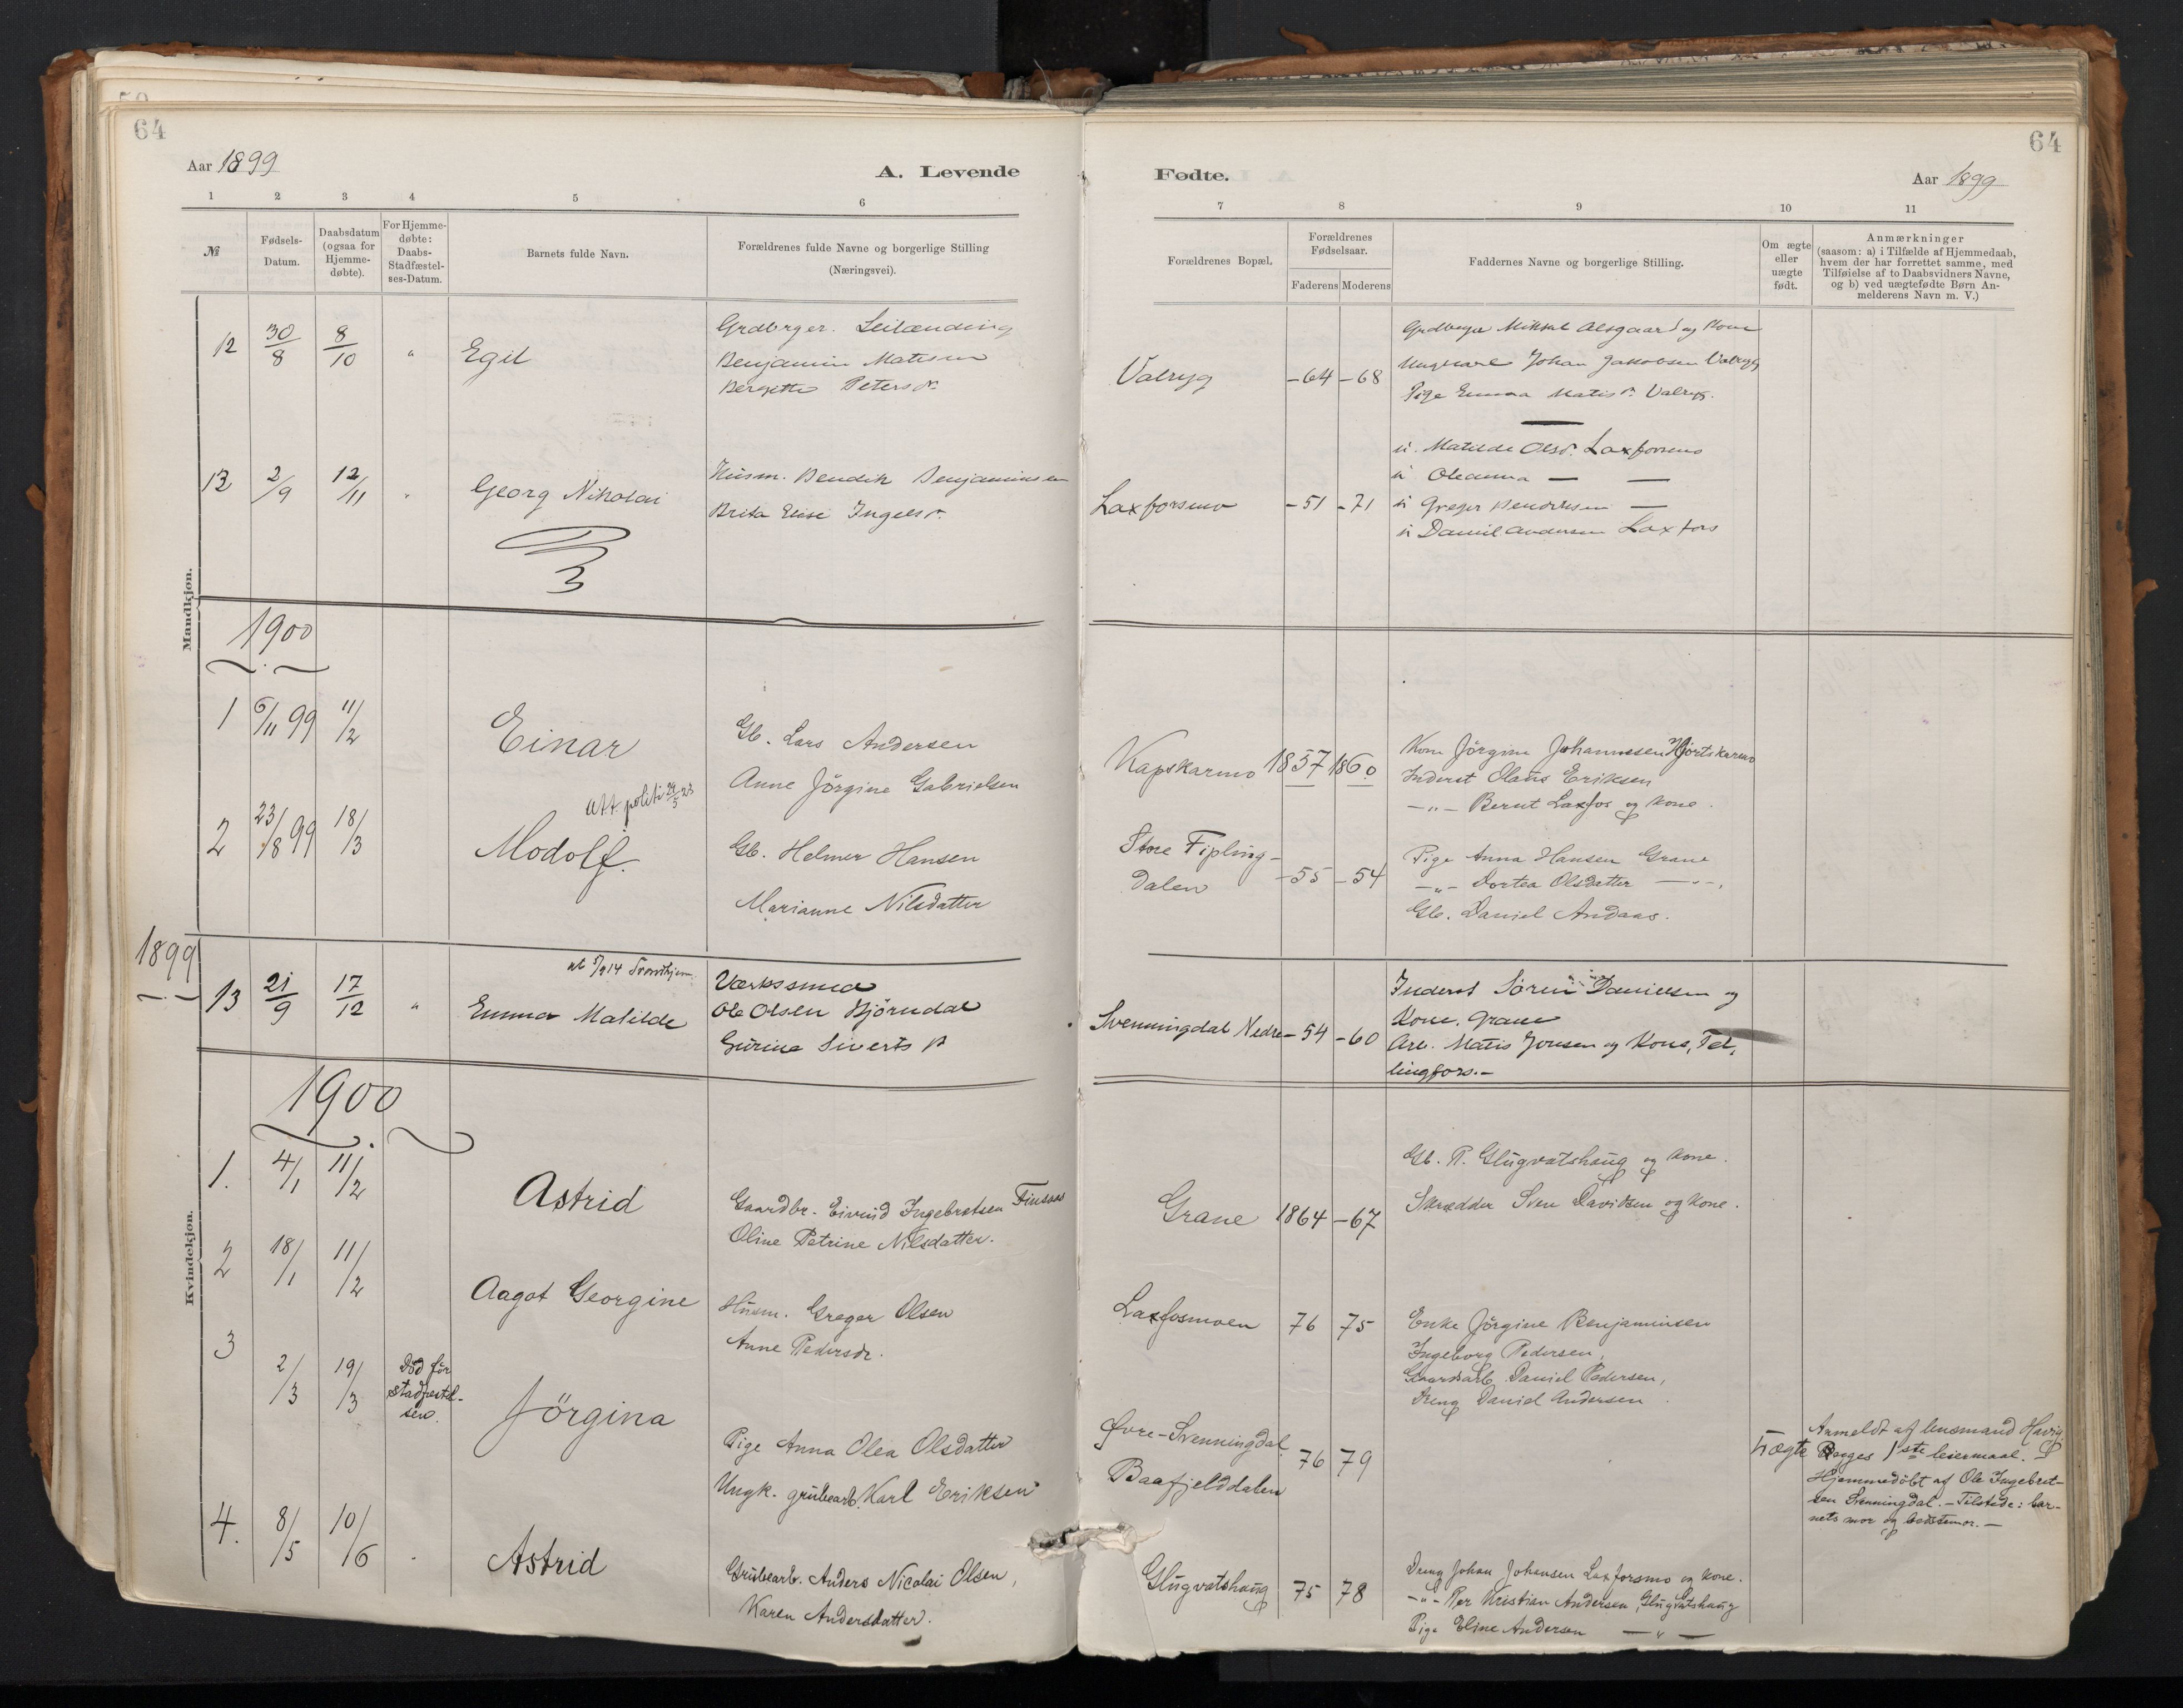 64
Aar 1899
A. Levende
1 2 3 4 5 6
№
Fødsels-Datum.
Daabsdatum (ogsaa for Hjemme-døbte).
For Hjemme-døbte: Daabs-Stadfæstel-ses-Datum.
Barnets fulde Navn.
Forældrenes fulde Navne og borgerlige Stilling
(Næringsvei).
Mandkjøn.
12 30/8 8/10 " Egil
Grdbrger. Leilænding
Benjamin Matisen
Bergitte Petersdr.
13 2/9 12/11 " Georg Nikolai
Husm. Bendik Benjaminsen
Brita Elise Ingelsdr.
1900
1 6/11 99 11/2 Einar
Gb. Lars Andersen
Anne Jörgine Gabrielsen
Att. politi 24/5 23
2 23/8 99 18/3 Modolf.
Gb. Helmer Hansen
Marianne Nilsdatter
1899
13 21/9 17/12 " Emma Matilde
Værkssmed
Ole Olsen Bjørndal
Gurine Siverts dr
1900
Kvindekjøn.
1. 4/1 11/2 Astrid
Gaardbr. Eivind Ingebretsen Finsaas
Oline Petrine Nilsdatter.
2 18/1 11/2 Aagot Georgine
Husm. Greger Olsen
Anne Pedersdr.
3 2/3 19/3 Död før stadfæstel-sen. Jörgina
Pige Anna Olea Olsdatter
Ungk. grubearb. Karl Eriksen
4. 8/5 10/6 Astrid
Grubearb. Anders Nicolai Olsen,
Karen Andersdatter.
64
Fødte.
Aar 1899
7 8 9 10 11
Forældrenes Bopæl.
Forældrenes Fødselsaar.
Faderens Moderens
Faddernes Navne og borgerlige Stilling.
Om ægte eller uægte født.
Anmærkninger
(saasom: a) i Tilfælde af Hjemmedaab,
hvem der har forrettet samme, med
Tilføielse af to Daabsvidners Navne,
og b) ved uægtefødte Børn An-
melderens Navn m. V.)
Valryg -64 -68
Grdbrger Mikkel Alsgaard og Kone
Ungkarl Johan Jakobsen Valryg
Pige Emma Matisdr. Valryg.
Laxforsmo -51 -71
Matilde Olsdr. Laxforsmo
Oleanna — —
Greger Bendiksen —
Daniel Andersen Laxfors
Kapskarmo 1857 1860
Kone Jörgine Johannesen Hjortskarmo
Inderst Olaus Eriksen
—"— Bernt Laxfos og kone.
Store Fipling-
dalen -55 -54
Pige Anna Hansen Grane
—"— Dortea Olsdatter —"—
Gb. Daniel Andaas.
Svenningdal Nedre -54 -60
Inderst Sören Danielsen og
Kone. Grane
Arb. Matis Jonsen og Kone,
lingfors.-
Grane 1864 -67
Gb. P. Glugvatshaug og kone.
Skrædder Sven Davidsen og kone.
Laxfosmoen 76 75
Enke Jörgine Benjaminsen
Ingeborg Pedersen,
Gaardarb. Daniel Pedersen,
Dreng Daniel Andersen.
Øvre-Svenningdal
Baafjelddalen 76 79
Uægte
Anmeldt af lensmand Havig.
Beges 1ste leiermaal.
Hjemmedöbt af Ole Ingebret-
sen Svenningdal. — Tilstede: bar-
nets mor og bedstemor. —
Glugvatshaug 75 78
Dreng Johan Johansen Laxforsmo og kone.
—"— Per Kristian Andersen, Glugvatshaug
Pige Eline Andersen —"—